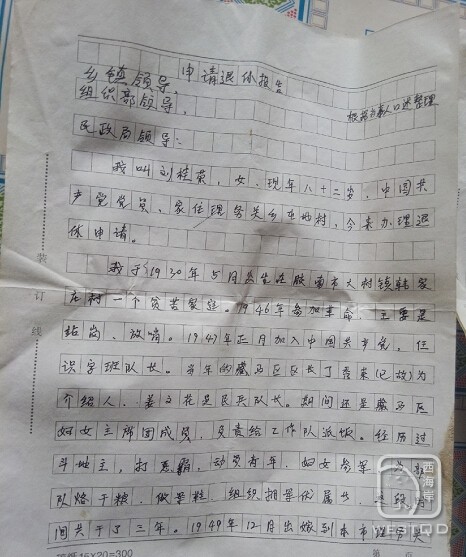 申请退休报告
乡镇领导,
组织部领导,
根据当事人口述整理
民政局领导:
我叫刘桂荣,女,现年八十二岁,中国共
产党党员,家住理务关乡地村,今来办理退
休申请。
我于1930年5月出生在胶南市大村镇韩家
庄村一个贫苦家庭。1946年参加革命,主要是
站岗、放哨。1947年正月加入中国共产党,任
识字班队长。当年的藏马区区长丁香来(已故)为
介绍人,姜文花是民兵队长。期间还是藏马区
妇女主席团成员,负责给工作队派饭。经历过
斗地主,打恶霸,动员青年、妇女参军,为部
队烙干粮、做军鞋、组织拥军优属等,这段时
间共干了三年。1949年12月出嫁到本市理务关
装
订
线
稿纸15×20=300
第 页
西海岸
WESTQD